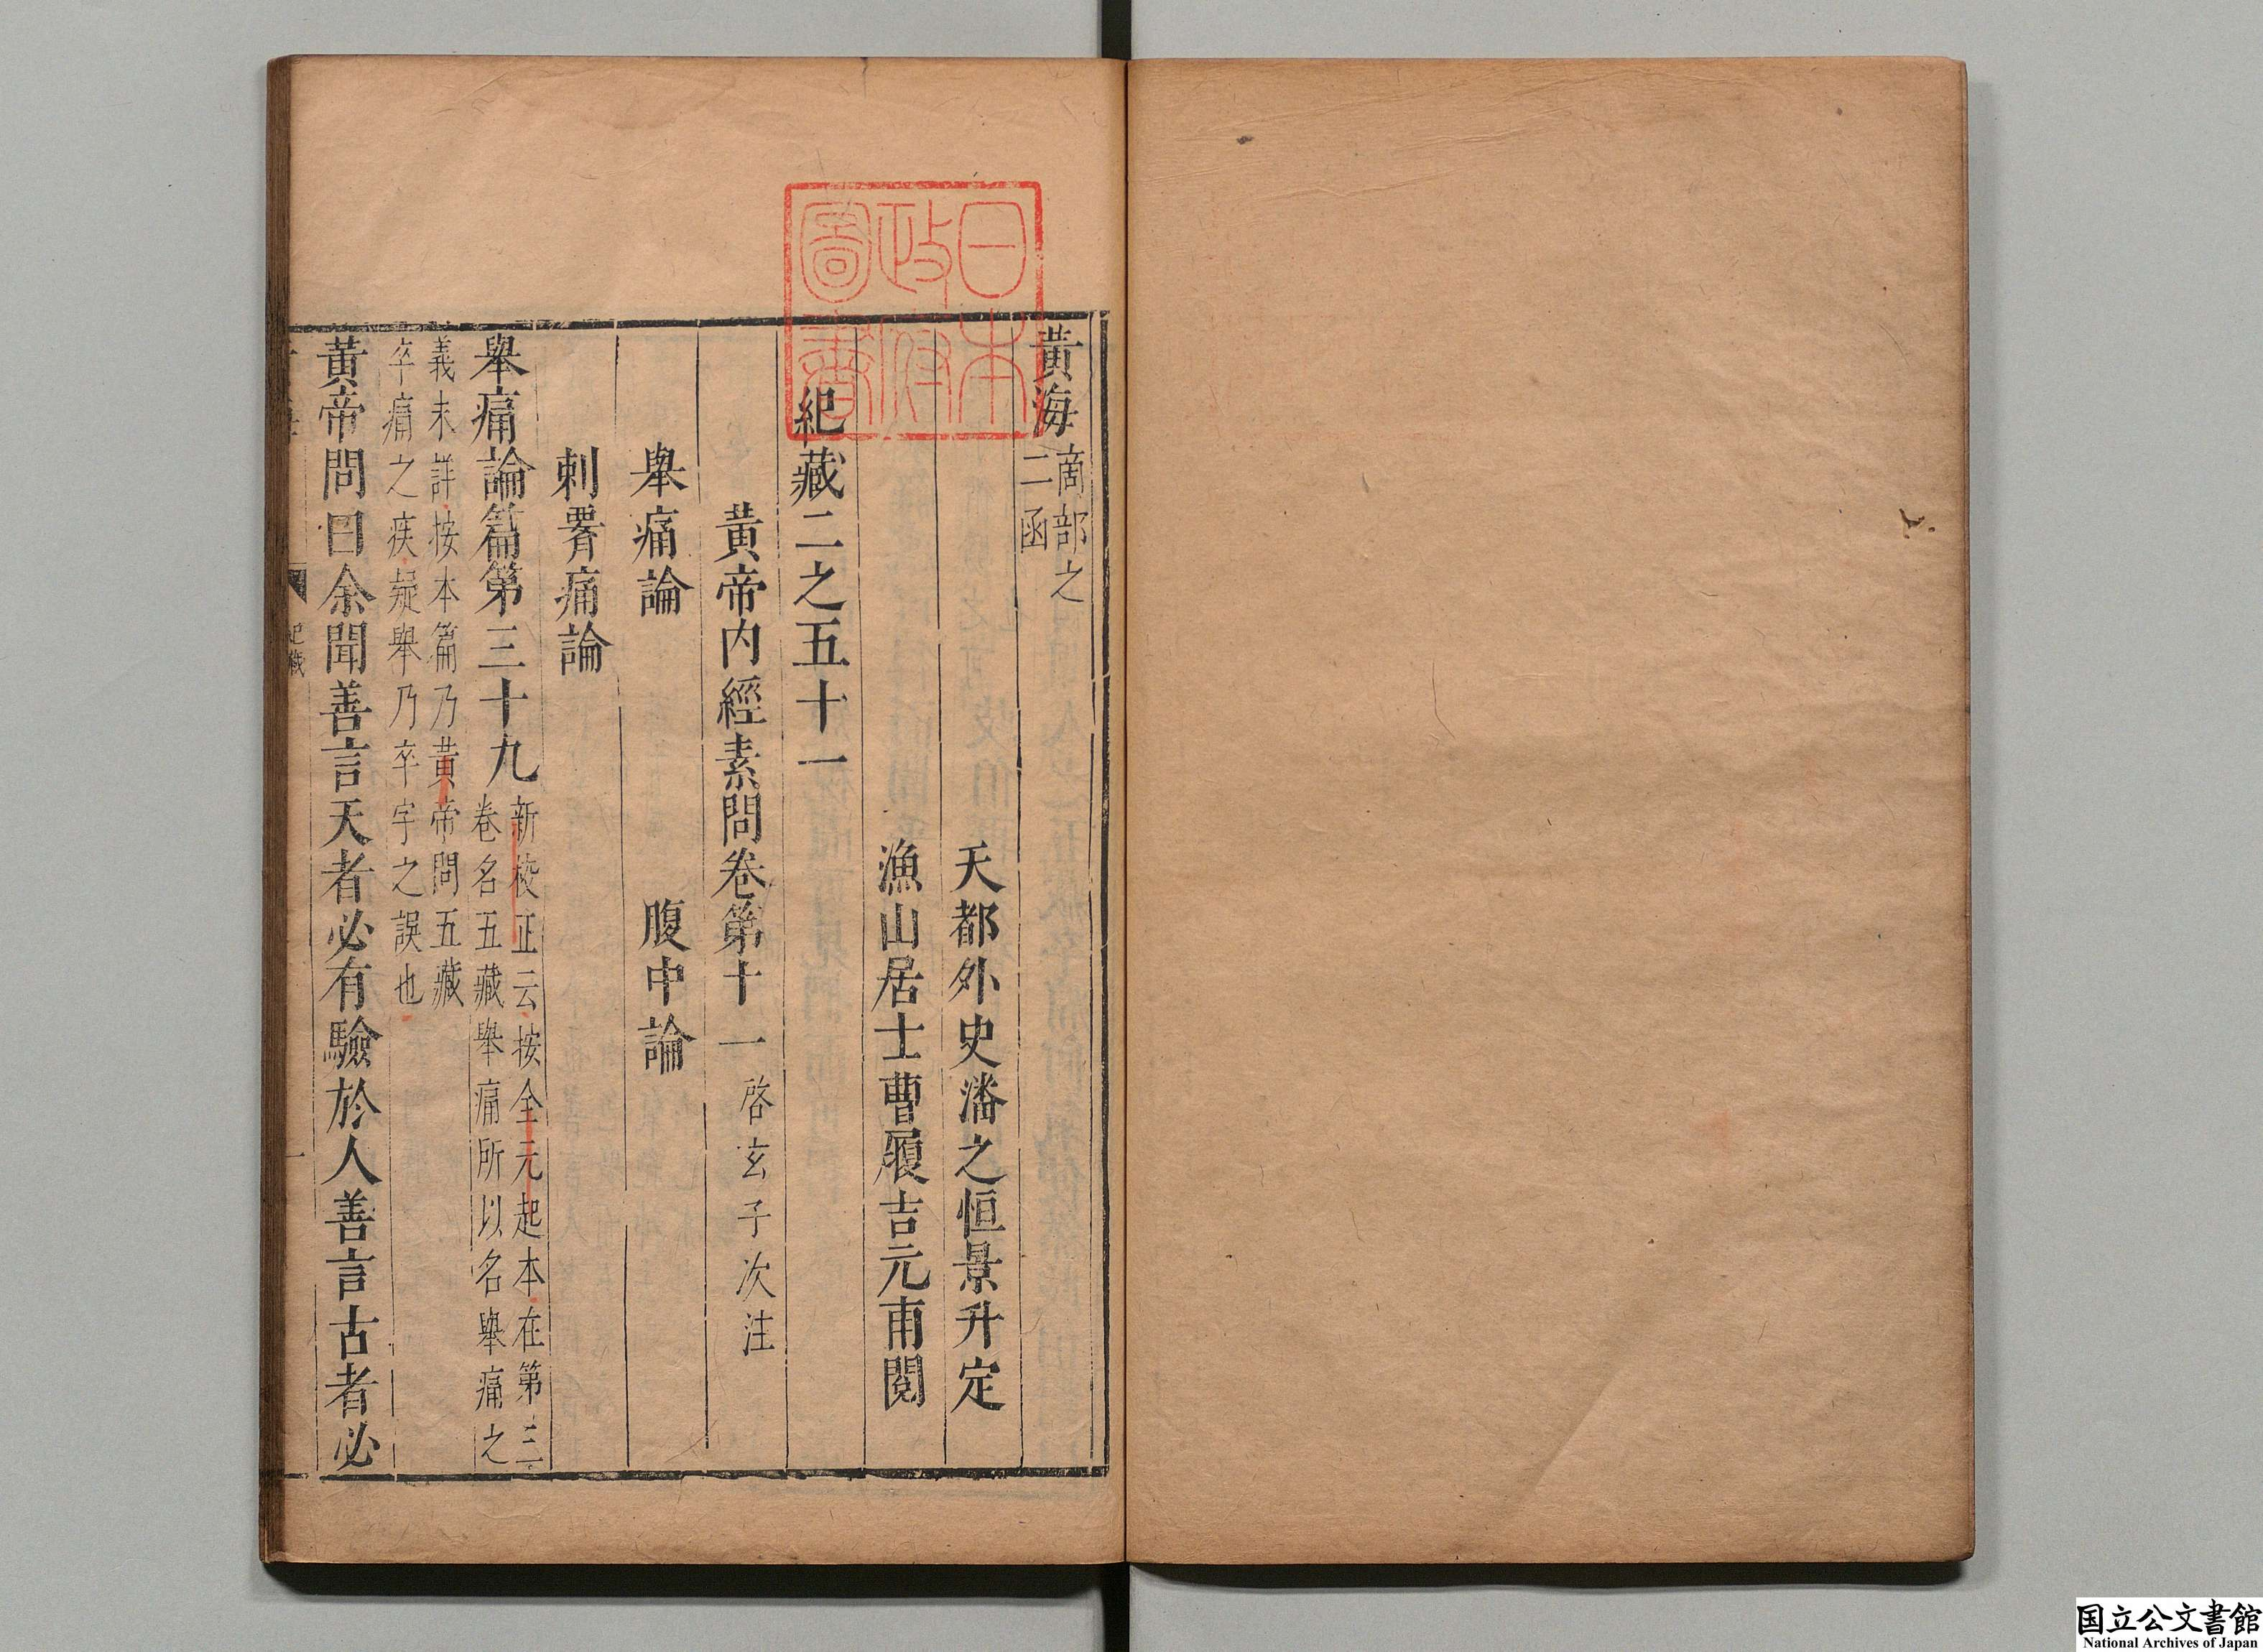 黃海
啇部之
二函
天都外史潘之恒景升定
漁山居士曹履吉元甫閱
紀藏二之五十一
黃帝内經素問卷第十一 啓玄子次注
舉痛論 腹中論
刺𦝫痛論
舉痛論篇第三十九 新校正云按全元起本在第三
卷名五藏舉痛所以名舉痛之
義未詳按本篇乃黃帝問五藏
卒痛之疾疑舉乃卒字之誤也
黃帝問曰余聞善言天者必有驗於人善言古者必
紀藏
一
日本
政府
圖書
国立公文書館
National Archives of Japan